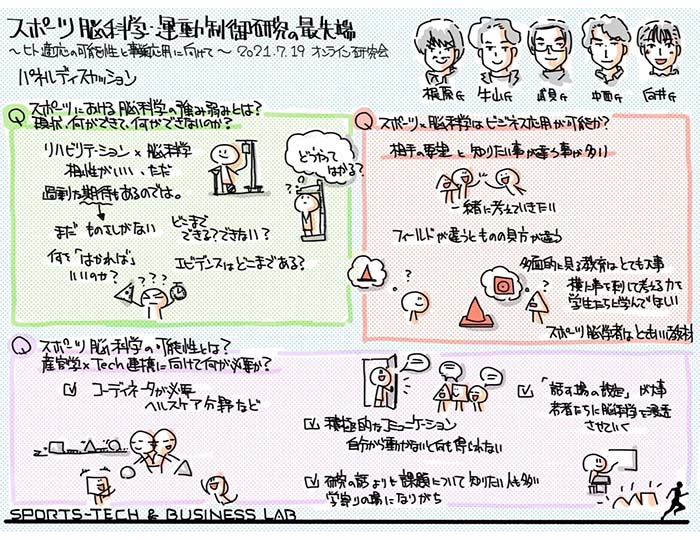 スポーツ脳科学・運動制御研究の最先端
～ヒト適応の可能性と事業応用に向けて～ 2021.7.19 オンライン研究会
パネルディスカッション
柏原氏 牛山氏 中西氏 向井氏
Q スポーツにおける脳科学の強み弱みとは?
現状、何ができて、何ができないのか?
リハビリテーション×脳科学
相性がいい、ただ
過剰な期待もあるのでは。
どうやってはかる?
まだ ものさしがない
どこまで
できる?できない?
何を「はかれば」
いいのか?
エビデンスはどこまである?
???
Q スポーツ×脳科学はビジネス応用が可能か?
相手の要望と知りたい事が違う事が多い
一緒に考えていきたい
フィールドが違うとものの見方が違う
多面的に見る教育はとても大事
考える力を
学生たちに学んでほしい
スポーツ脳科学者はともいい教材
Q スポーツ脳科学の可能性とは?
産官学×Tech連携に向けて何が必要か?
コーディネータが必要
ヘルスケア分野など
積極的なコミュニケーション
自分から動かないと何も得られない
研究の話よりも課題について知りたい人も多い
学寄りの場になりがち
「話す場の設定」が大事
若者たちに脳科学を浸透
させていく
SPORTS-TECH & BUSINESS LAB